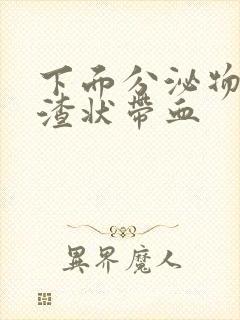 下面分泌物
渣状带血
異界魔人